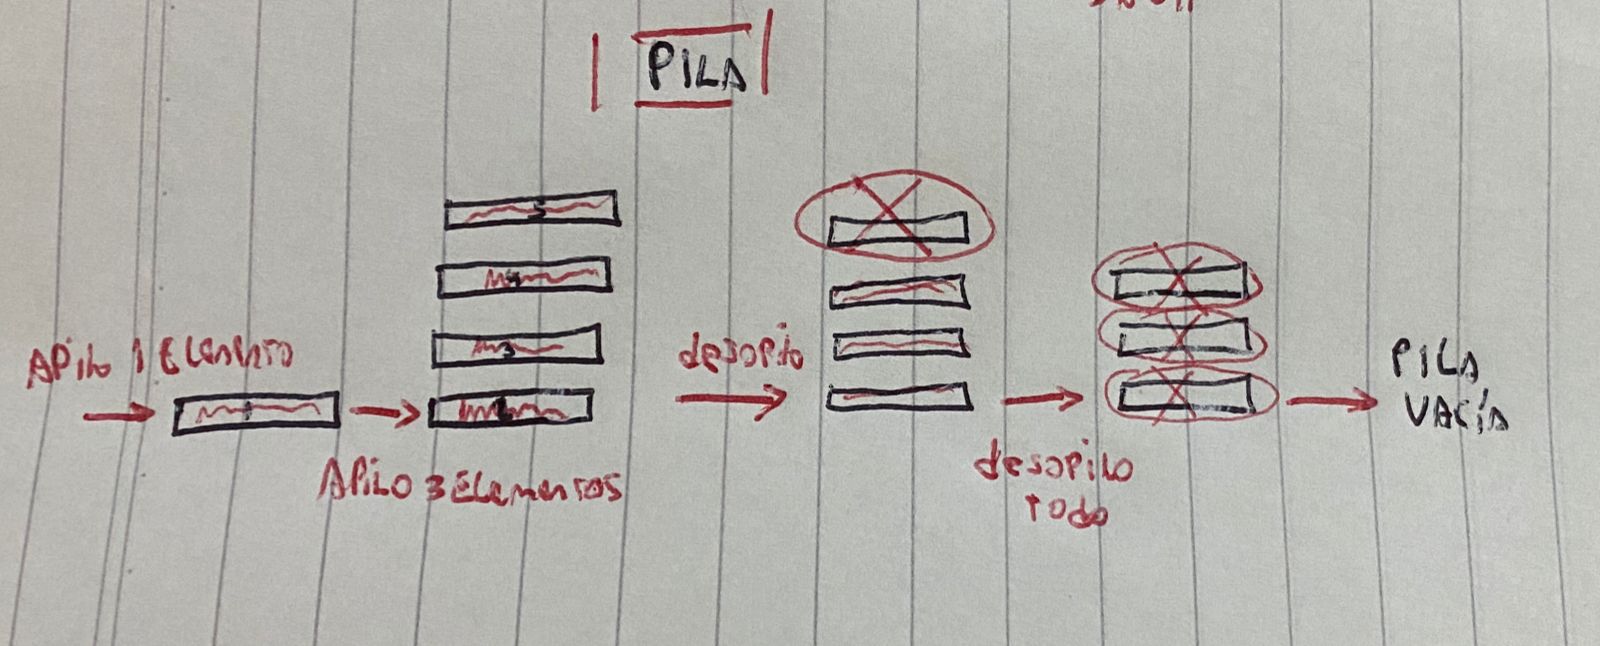 PILA
APilo 1 Elemento
APilo 3 Elementos
desapilo
desapilo
todo
PILA
VACÍA